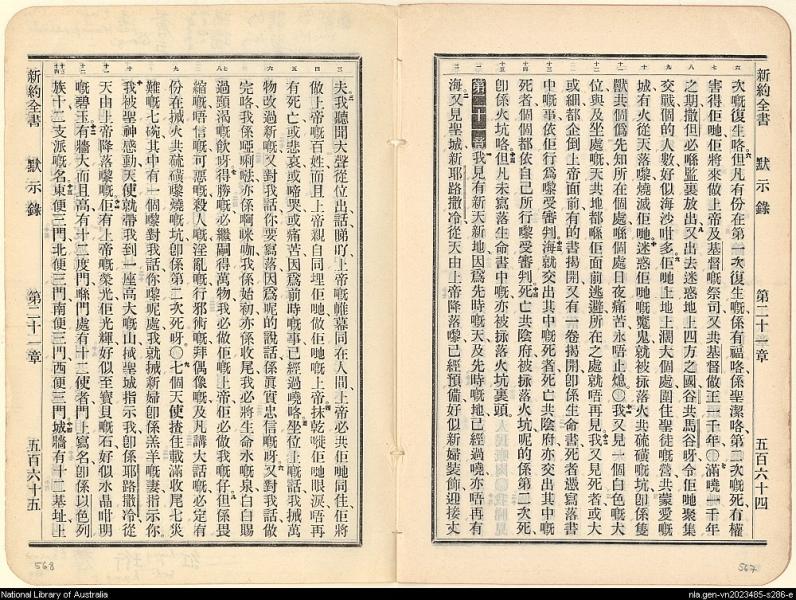 新約全書 默示錄 第二十一章 五百六十四
次嘅復生咯但凡有份在第一次復生嘅係有福咯係聖潔咯第二次嘅死冇權
害得佢哋佢將來做上帝及基督嘅祭司又共基督做王一千年○滿曉一千年
之期撒但必喺監裏放出又出去迷惑地上四方之國谷共馬谷呀令佢哋聚集
交戰嘅個的人數好似海沙咁多佢哋上地上濶大個處圍住聖徒嘅營共蒙愛嘅
城有火從天落嚟燒滅佢哋迷惑佢哋嘅魔鬼就被掞落火共硫磺嘅坑卽係隻
獸共個僞先知所在個處喺個處日夜痛苦永唔止熄○我又見一個白色嘅大
位與及坐處嘅天共地都喺佢面前逃避所在之處就唔再見我又見死者或大
或細都企倒上帝面前有的書揭開又有一卷揭開卽係生命書死者憑寫落書
中嘅事依佢行爲嚟受審判海就交出其中嘅死者死亡共陰府亦交出其中嘅
死者個個都依自己所行嚟受審判死亡共陰府被掞落火坑呢的係第二次死
卽係火坑咯但凡未寫落生命書中嘅亦被掞落火坑裏頭
第二十一章 我見有新天新地因爲先時嘅天及先時嘅地已經過曉亦唔再有
海又見聖城新耶路撒冷從天由上帝降落嚟已經預備好似新婦裝飾迎接丈
567
夫我聽聞大聲從位出話睇吖上帝嘅帷幕同在人間上帝必共佢哋同住佢將
做上帝嘅百姓而且上帝親自同埋佢哋做佢哋嘅上帝抹乾嘥佢哋眼淚唔再
有死亡或悲哀或啼哭或痛苦因爲前時嘅事已經過曉咯坐位上嘅話我揻萬
物改過新嘅又對我話你要寫落因爲呢的說話係眞實忠信嘅呀又對我話做
完咯我係啞唎𠵽亦係啊咪咖我係始初亦係收尾我必將生命水嘅泉白白賜
過頸渴嘅飮呀得勝嘅必繼嗣得萬物我必做佢嘅上帝佢必做我嘅仔但係畏
縮嘅唔信嘅可惡嘅殺人嘅淫亂嘅行邪術嘅拜偶像嘅及凡講大話嘅必定有
份在揻火共硫磺嚟燒嘅坑卽係第二次死呀○七個天使揸住載滿收尾七災
難嘅七碗其中有一個嚟對我話你嚟呢處我就揻新婦卽係羔羊嘅妻指示你
我被聖神感動天使就帶我到一座高大嘅山揻聖城指示我卽係耶路撒冷從
天由上帝降落嚟嘅佢有上帝嘅榮光佢光輝好似至寶貝嘅石好似水晶咁明
嘅碧玉有牆大而且高有十二度門喺門處有十二使者門上寫名卽係以色列
族十二支派嘅名東便三門北便三門南便三門西便三門城牆有十二基址上
新約全書 默示錄 第二十一章 五百六十五
568
National Library of Australia
nla.gen-vn2023485-s286-e